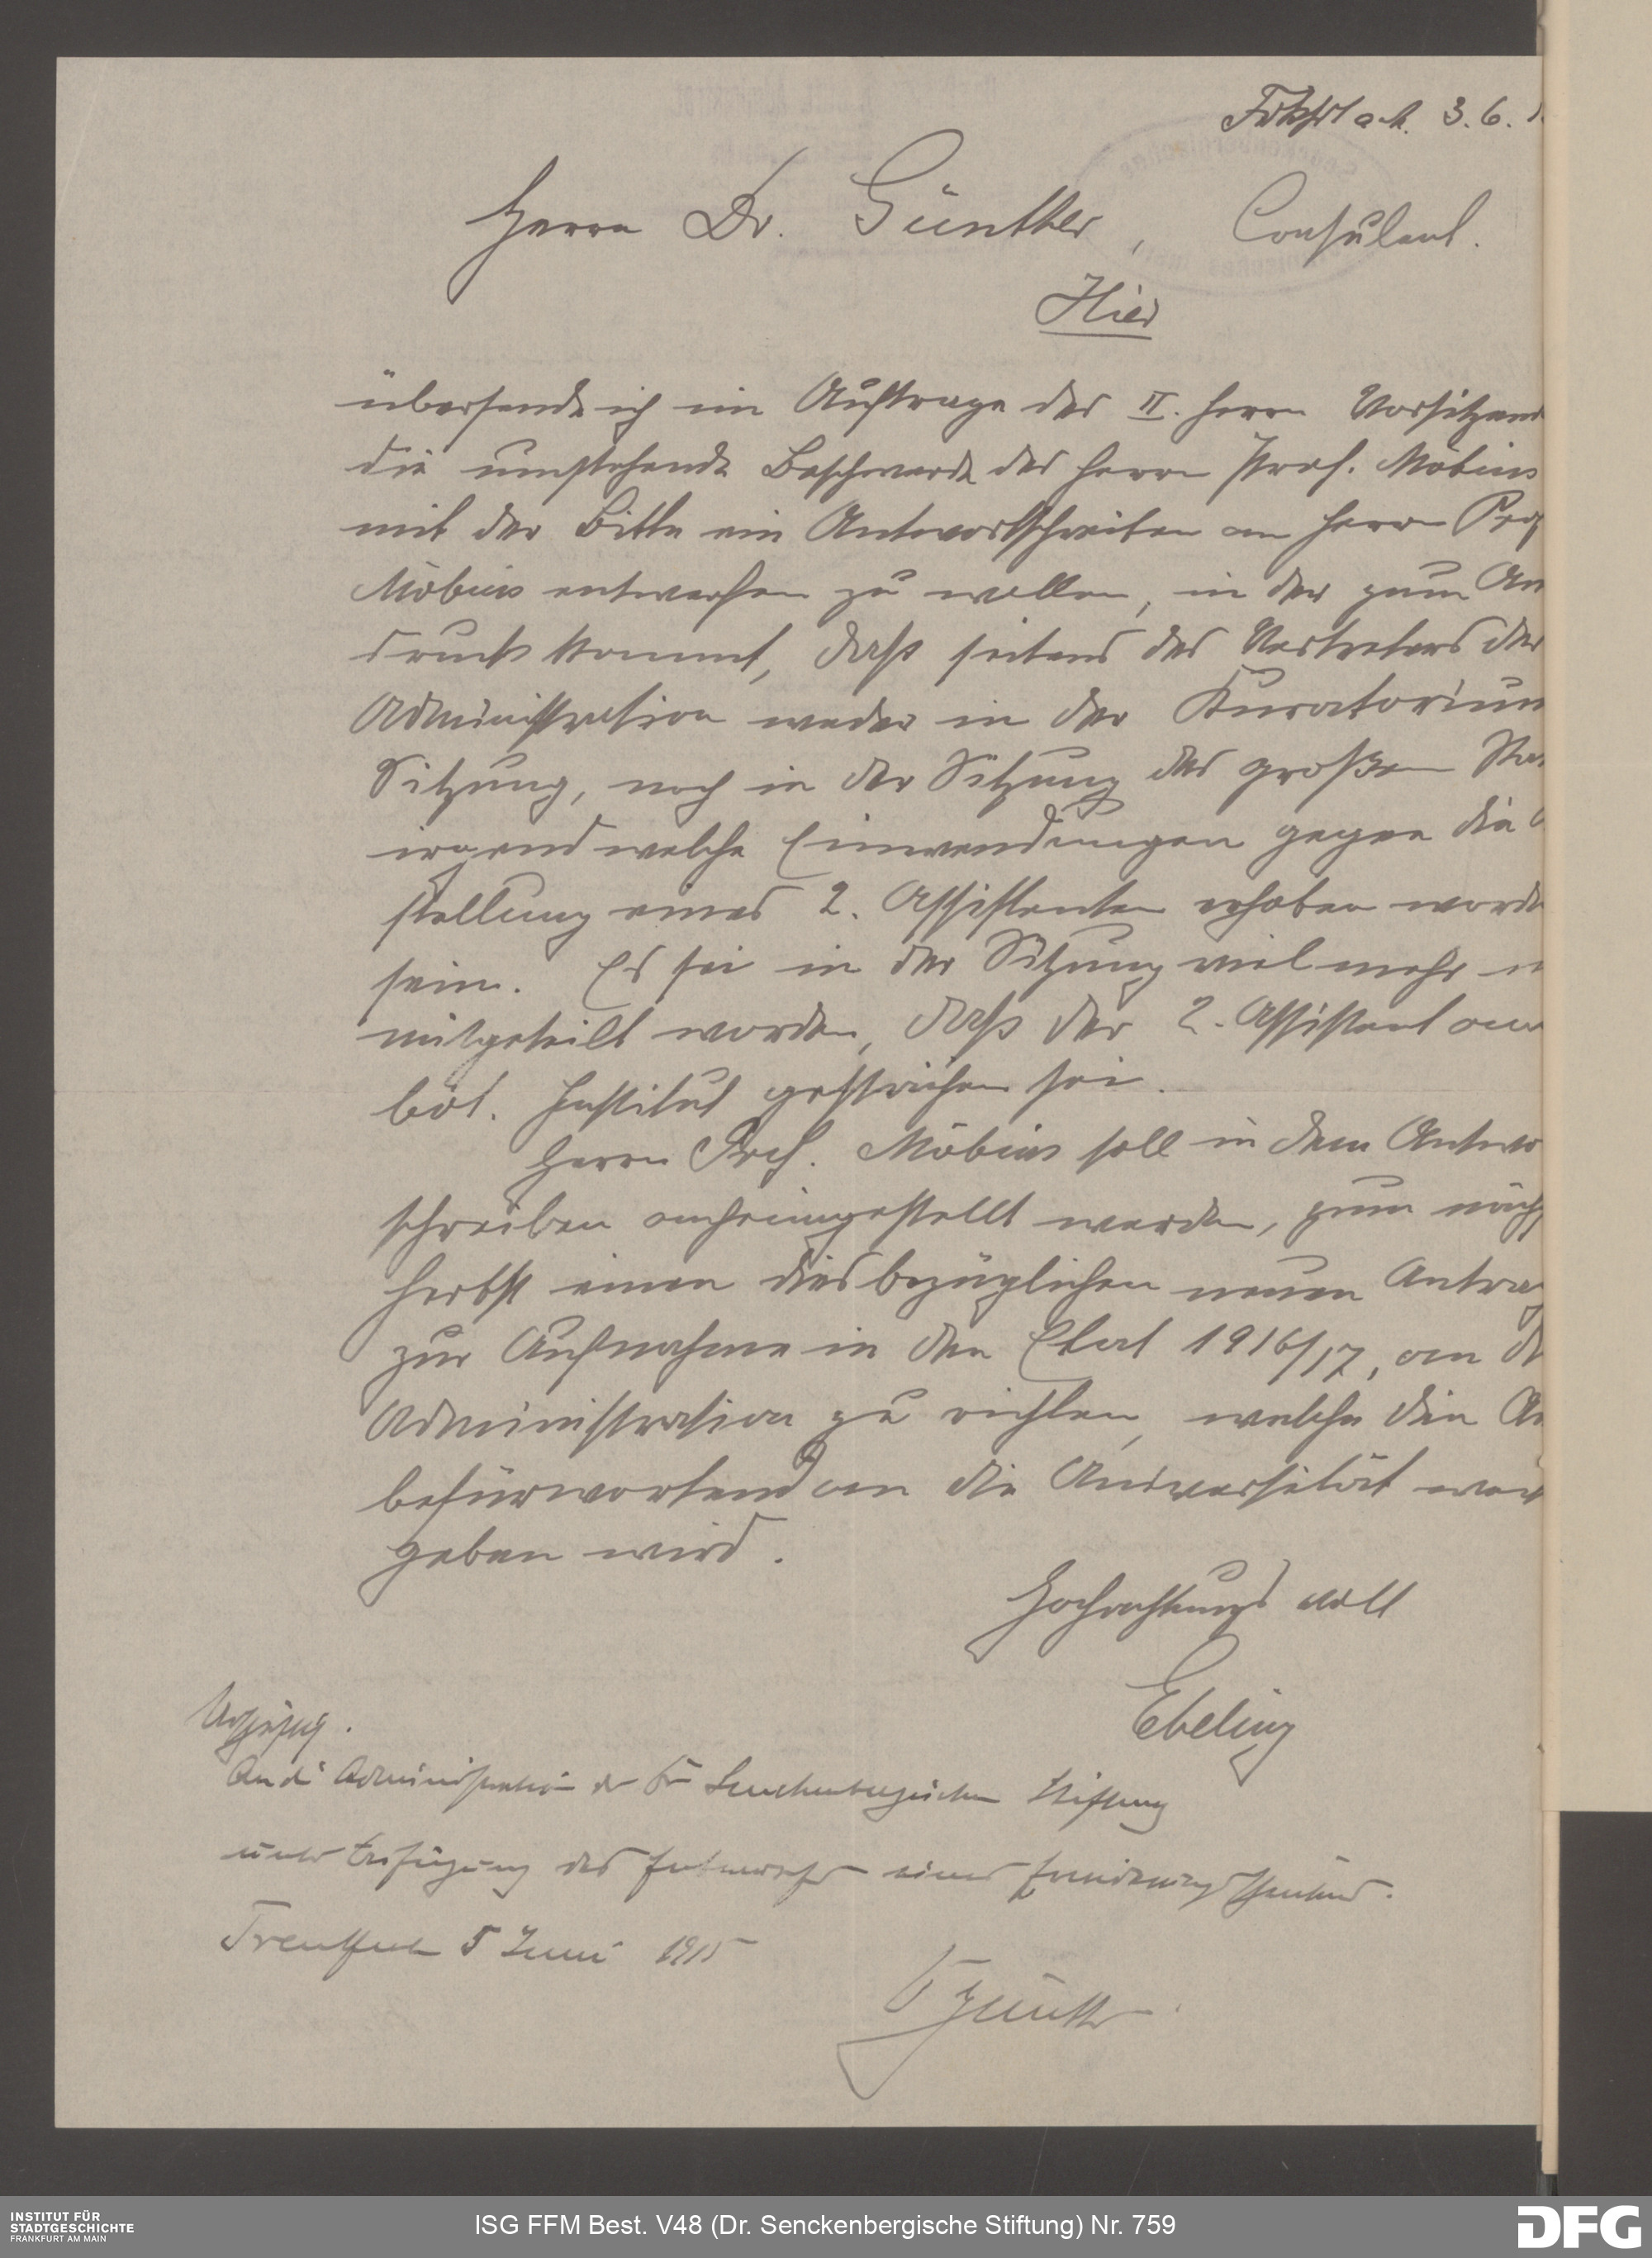 Frkfrt a. M. 3. 6. 1
Herrn Dr. Günther, Consulent.
Hier
übersende ich im Auftrage des II. Herrn Vorsitzend
die umstehende Beschwerde des Herrn Prof. Möbius
mit der Bitte ein Antwortschreiben an Herrn Prof
Möbius entwerfen zu wollen, in der zum Au
druck kommt, daß seitens des Vertreters der
Administration weder in der Kuratorium
Sitzung, noch in der Sitzung des großen Ra
irgend welche Einwendungen gegen die
stellung eines 2. Assistenten erhoben worde
sein. Es sei in der Sitzung viel mehr
mitgeteilt worden, daß der 2. Assistent am
bot. Institut gestrichen sei.
Herrn Prof. Möbius soll in dem Antwo
schreiben anheimgestellt werden, zum näch
Herbst einen diesbezüglichen neuen Antrag
zur Aufnahme in den Etat 1916/17, an d
Administration zu richten, welche den An
befürwortend an die Universität weit
geben wird.
Hochachtungsvoll
Ebeling
An die Administration der Dr Senckenbergischen Stiftung
unter Beifügung des Entwurfs eines Erwiderungsschreibens.
Frankfurt 5 Juni 1915
Dr Günther
ISG FFM Best. V48 (Dr. Senckenbergische Stiftung) Nr. 759
INSTITUT FÜR
STADTGESCHICHTE
FRANKFURT AM MAIN
DFG